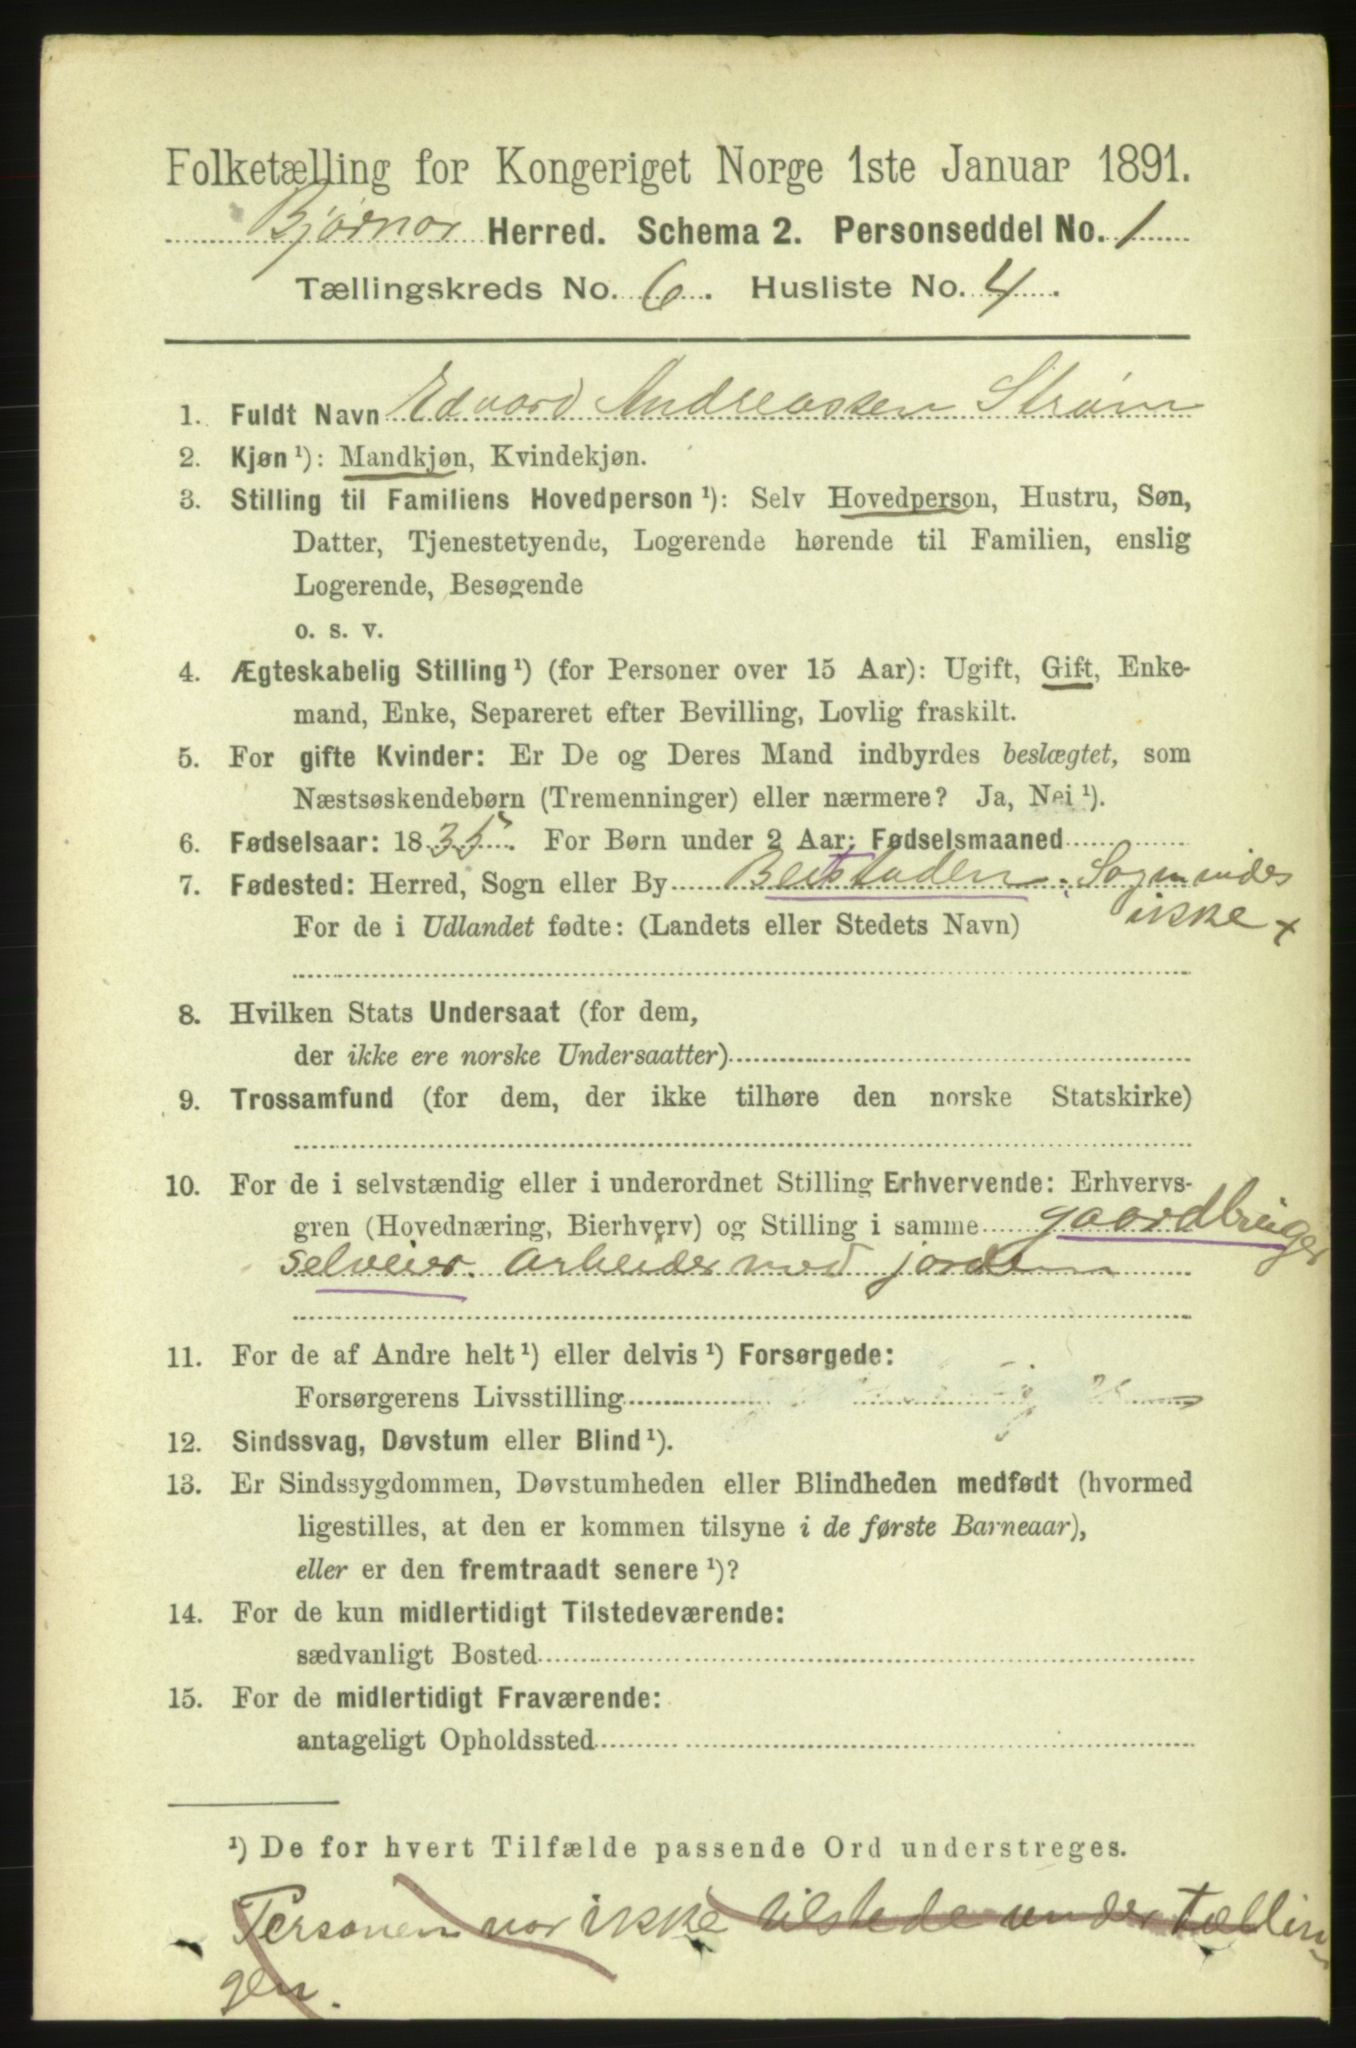 Folketælling for Kongeriget Norge 1ste Januar 1891.
Bjørnør Herred. Schema 2. Personseddel No. 1
Tællingskreds No. 6. Husliste No. 4.
1. Fuldt Navn Edvard Andreassen Strøm
2. Kjøn ¹): Mandkjøn, Kvindekjøn.
3. Stilling til Familiens Hovedperson ¹): Selv Hovedperson, Hustru, Søn,
Datter, Tjenestetyende, Logerende hørende til Familien, enslig
Logerende, Besøgende
o. s. v.
4. Ægteskabelig Stilling ¹) (for Personer over 15 Aar): Ugift, Gift, Enke-
mand, Enke, Separeret efter Bevilling, Lovlig fraskilt.
5. For gifte Kvinder: Er De og Deres Mand indbyrdes beslægtet, som
Næstsøskendebørn (Tremenninger) eller nærmere? Ja, Nei ¹).
6. Fødselsaar: 1835. For Børn under 2 Aar: Fødselsmaaned
7. Fødested: Herred, Sogn eller By Beitstaden. Sogn vides
ikke x
For de i Udlandet fødte: (Landets eller Stedets Navn)
8. Hvilken Stats Undersaat (for dem,
der ikke ere norske Undersaatter)
9. Trossamfund (for dem, der ikke tilhøre den norske Statskirke)
10. For de i selvstændig eller i underordnet Stilling Erhvervende: Erhvervs-
gren (Hovednæring, Bierhverv) og Stilling i samme gaardbruger
selveier. arbeider med jorden
11. For de af Andre helt ¹) eller delvis ¹) Forsørgede:
Forsørgerens Livsstilling
12. Sindssvag, Døvstum eller Blind ¹).
13. Er Sindssygdommen, Døvstumheden eller Blindheden medfødt (hvormed
ligestilles, at den er kommen tilsyne i de første Barneaar),
eller er den fremtraadt senere ¹)?
14. For de kun midlertidigt Tilstedeværende:
sædvanligt Bosted
15. For de midlertidigt Fraværende:
antageligt Opholdssted
¹) De for hvert Tilfælde passende Ord understreges.
Personen var ikke tilstede under tællin-
gen.